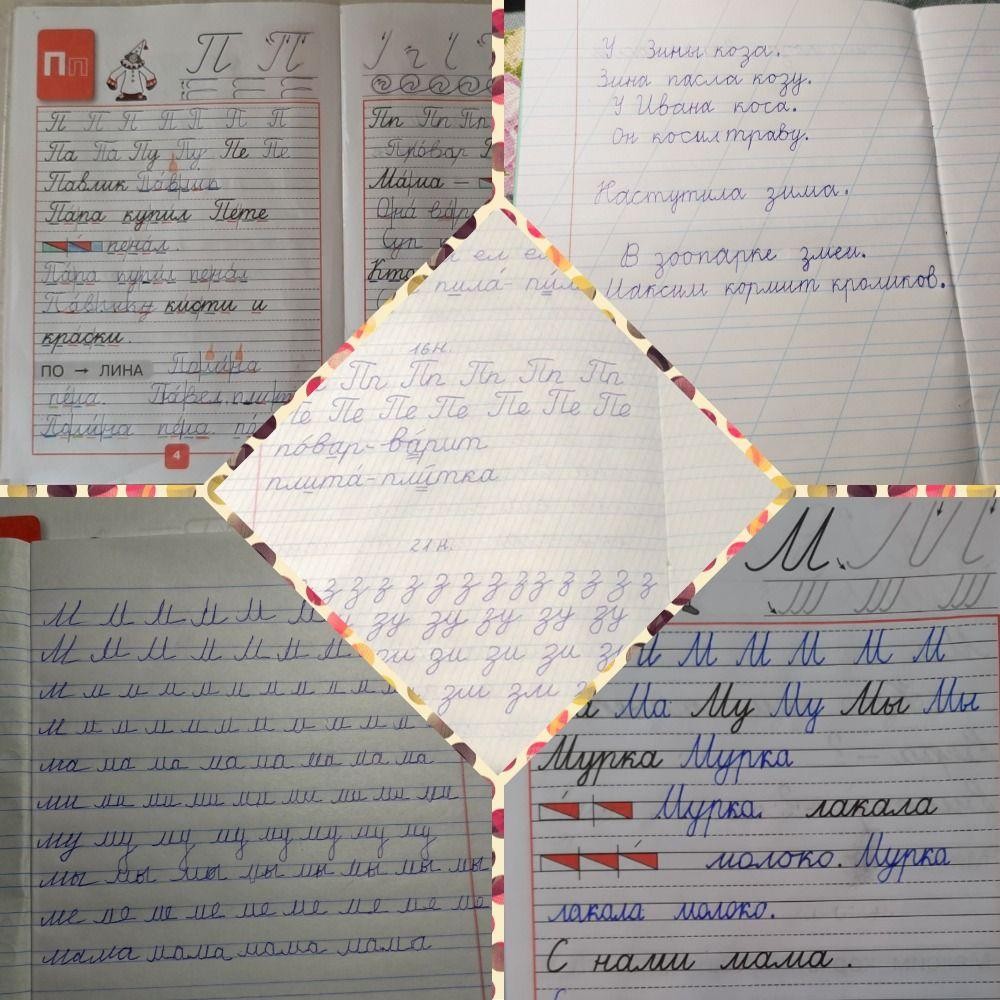 Пп
П П
П П П П П П П
Па Па Пу Пу Пе Пе
Павлик Па́влик
Па́па купи́л Пе́те
пена́л.
Па́па купи́л пена́л
Па́влику ки́сти и
кра́ски.
ПО → ЛИНА Поли́на
пе́ла. Па́вел
Поли́на пе́ла.
4
Пп Пп Пп
По́вар
Ма́ма –
Она́
Суп
Кто
У Зины коза.
Зина пасла козу.
У Ивана коса.
Он косил траву.
Настутила зима.
В зоопарке змеи.
Максим кормит кроликов.
ел
пила́ - пи́л
16 н.
Пп Пп Пп Пп Пп
Пе Пе Пе Пе Пе Пе Пе
по́вар - ва́рит
плита́ - пли́тка
21 н.
з з з з з з з з з з з з з
зу зу зу зу зу
зи зи зи
зм зм
М М М М М М
М М М М М М М
м м м м м м м м м м
м м м м м м м м м м
ма ма ма ма ма ма ма ма
ми ми ми ми ми ми ми ми ми
му му му му му му му му
мы мы мы мы мы мы мы мы
ме ме ме ме ме ме ме ме ме
мама мама мама мама
М
М М М М М М
Ма Му Му Мы Мы
Мурка Мурка
Мурка лакала
молоко. Мурка
лакала молоко.
С нами мама.